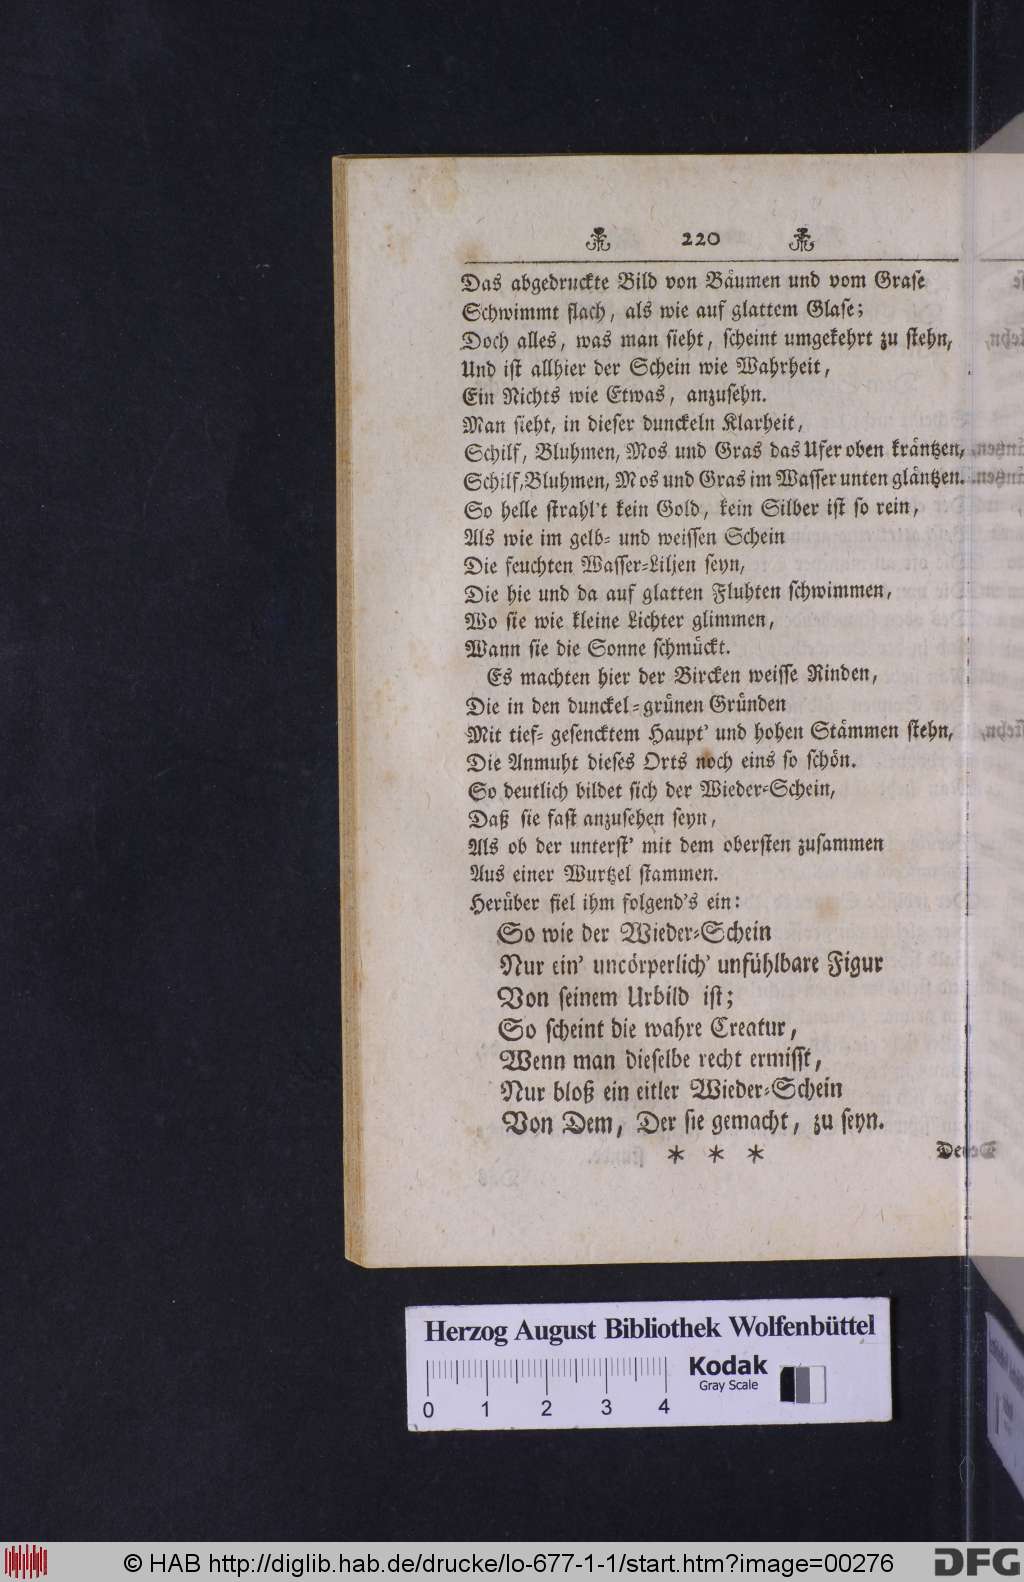 220
Das abgedruckte Bild von Bäumen und vom Grase
Schwimmt flach, als wie auf glattem Glase;
Doch alles, was man sieht, scheint umgekehrt zu stehn,
Und ist allhier der Schein wie Wahrheit,
Ein Nichts wie Etwas, anzusehn.
Man sieht, in dieser dunckeln Klarheit,
Schilf, Bluhmen, Mos und Gras das Ufer oben kräntzen,
Schilf, Bluhmen, Mos und Gras im Wasser unten gläntzen.
So helle strahl't kein Gold, kein Silber ist so rein,
Als wie im gelb- und weissen Schein
Die feuchten Wasser-Liljen seyn,
Die hie und da auf glatten Fluhten schwimmen,
Wo sie wie kleine Lichter glimmen,
Wann sie die Sonne schmückt.
Es machten hier der Bircken weisse Rinden,
Die in den dunckel-grünen Gründen
Mit tief- gesencktem Haupt' und hohen Stämmen stehn,
Die Anmuht dieses Orts noch eins so schön.
So deutlich bildet sich der Wieder-Schein,
Daß sie fast anzusehen seyn,
Als ob der unterst' mit dem obersten zusammen
Aus einer Wurtzel stammen.
Herüber fiel ihm folgend's ein:
So wie der Wieder-Schein
Nur ein' uncörperlich' unfühlbare Figur
Von seinem Urbild ist;
So scheint die wahre Creatur,
Wenn man dieselbe recht ermisst,
Nur bloß ein eitler Wieder-Schein
Von Dem, Der sie gemacht, zu seyn.
* * *
Herzog August Bibliothek Wolfenbüttel
Kodak
Gray Scale
0 1 2 3 4
© HAB http://diglib.hab.de/drucke/lo-677-1-1/start.htm?image=00276
DFG